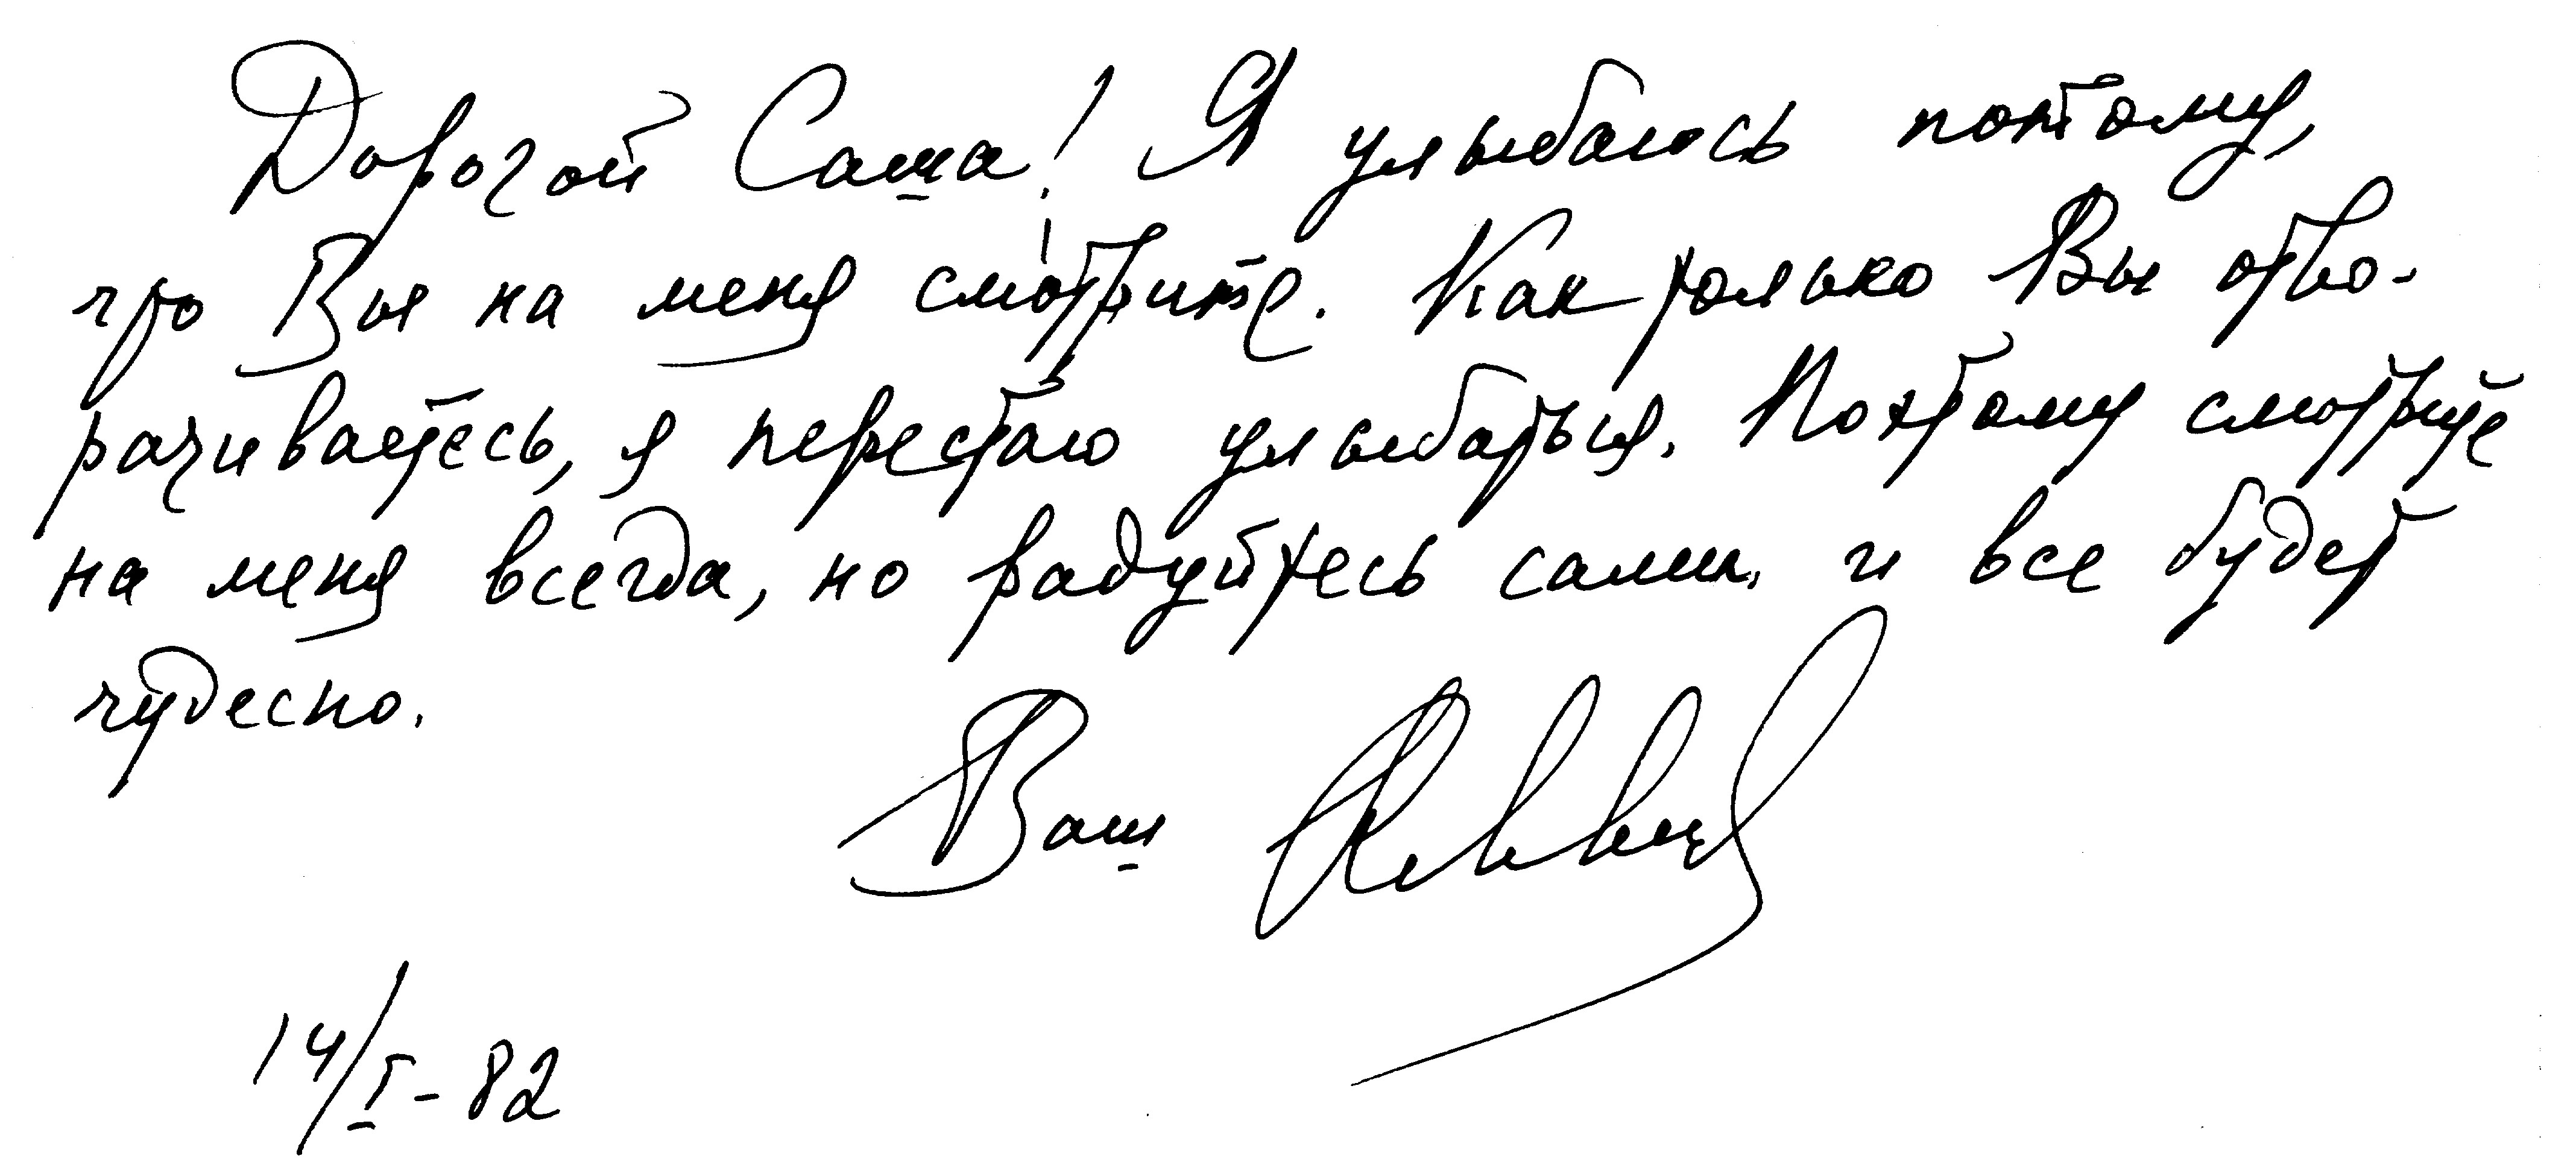 Дорогой Саша! Я улыбаюсь потому,
что Вы на меня смотрите. Как только Вы отво-
рачиваетесь, я перестаю улыбаться. Поэтому смотрите
на меня всегда, но радуйтесь сами, и все будет
чудесно.
Ваш
14/I-82